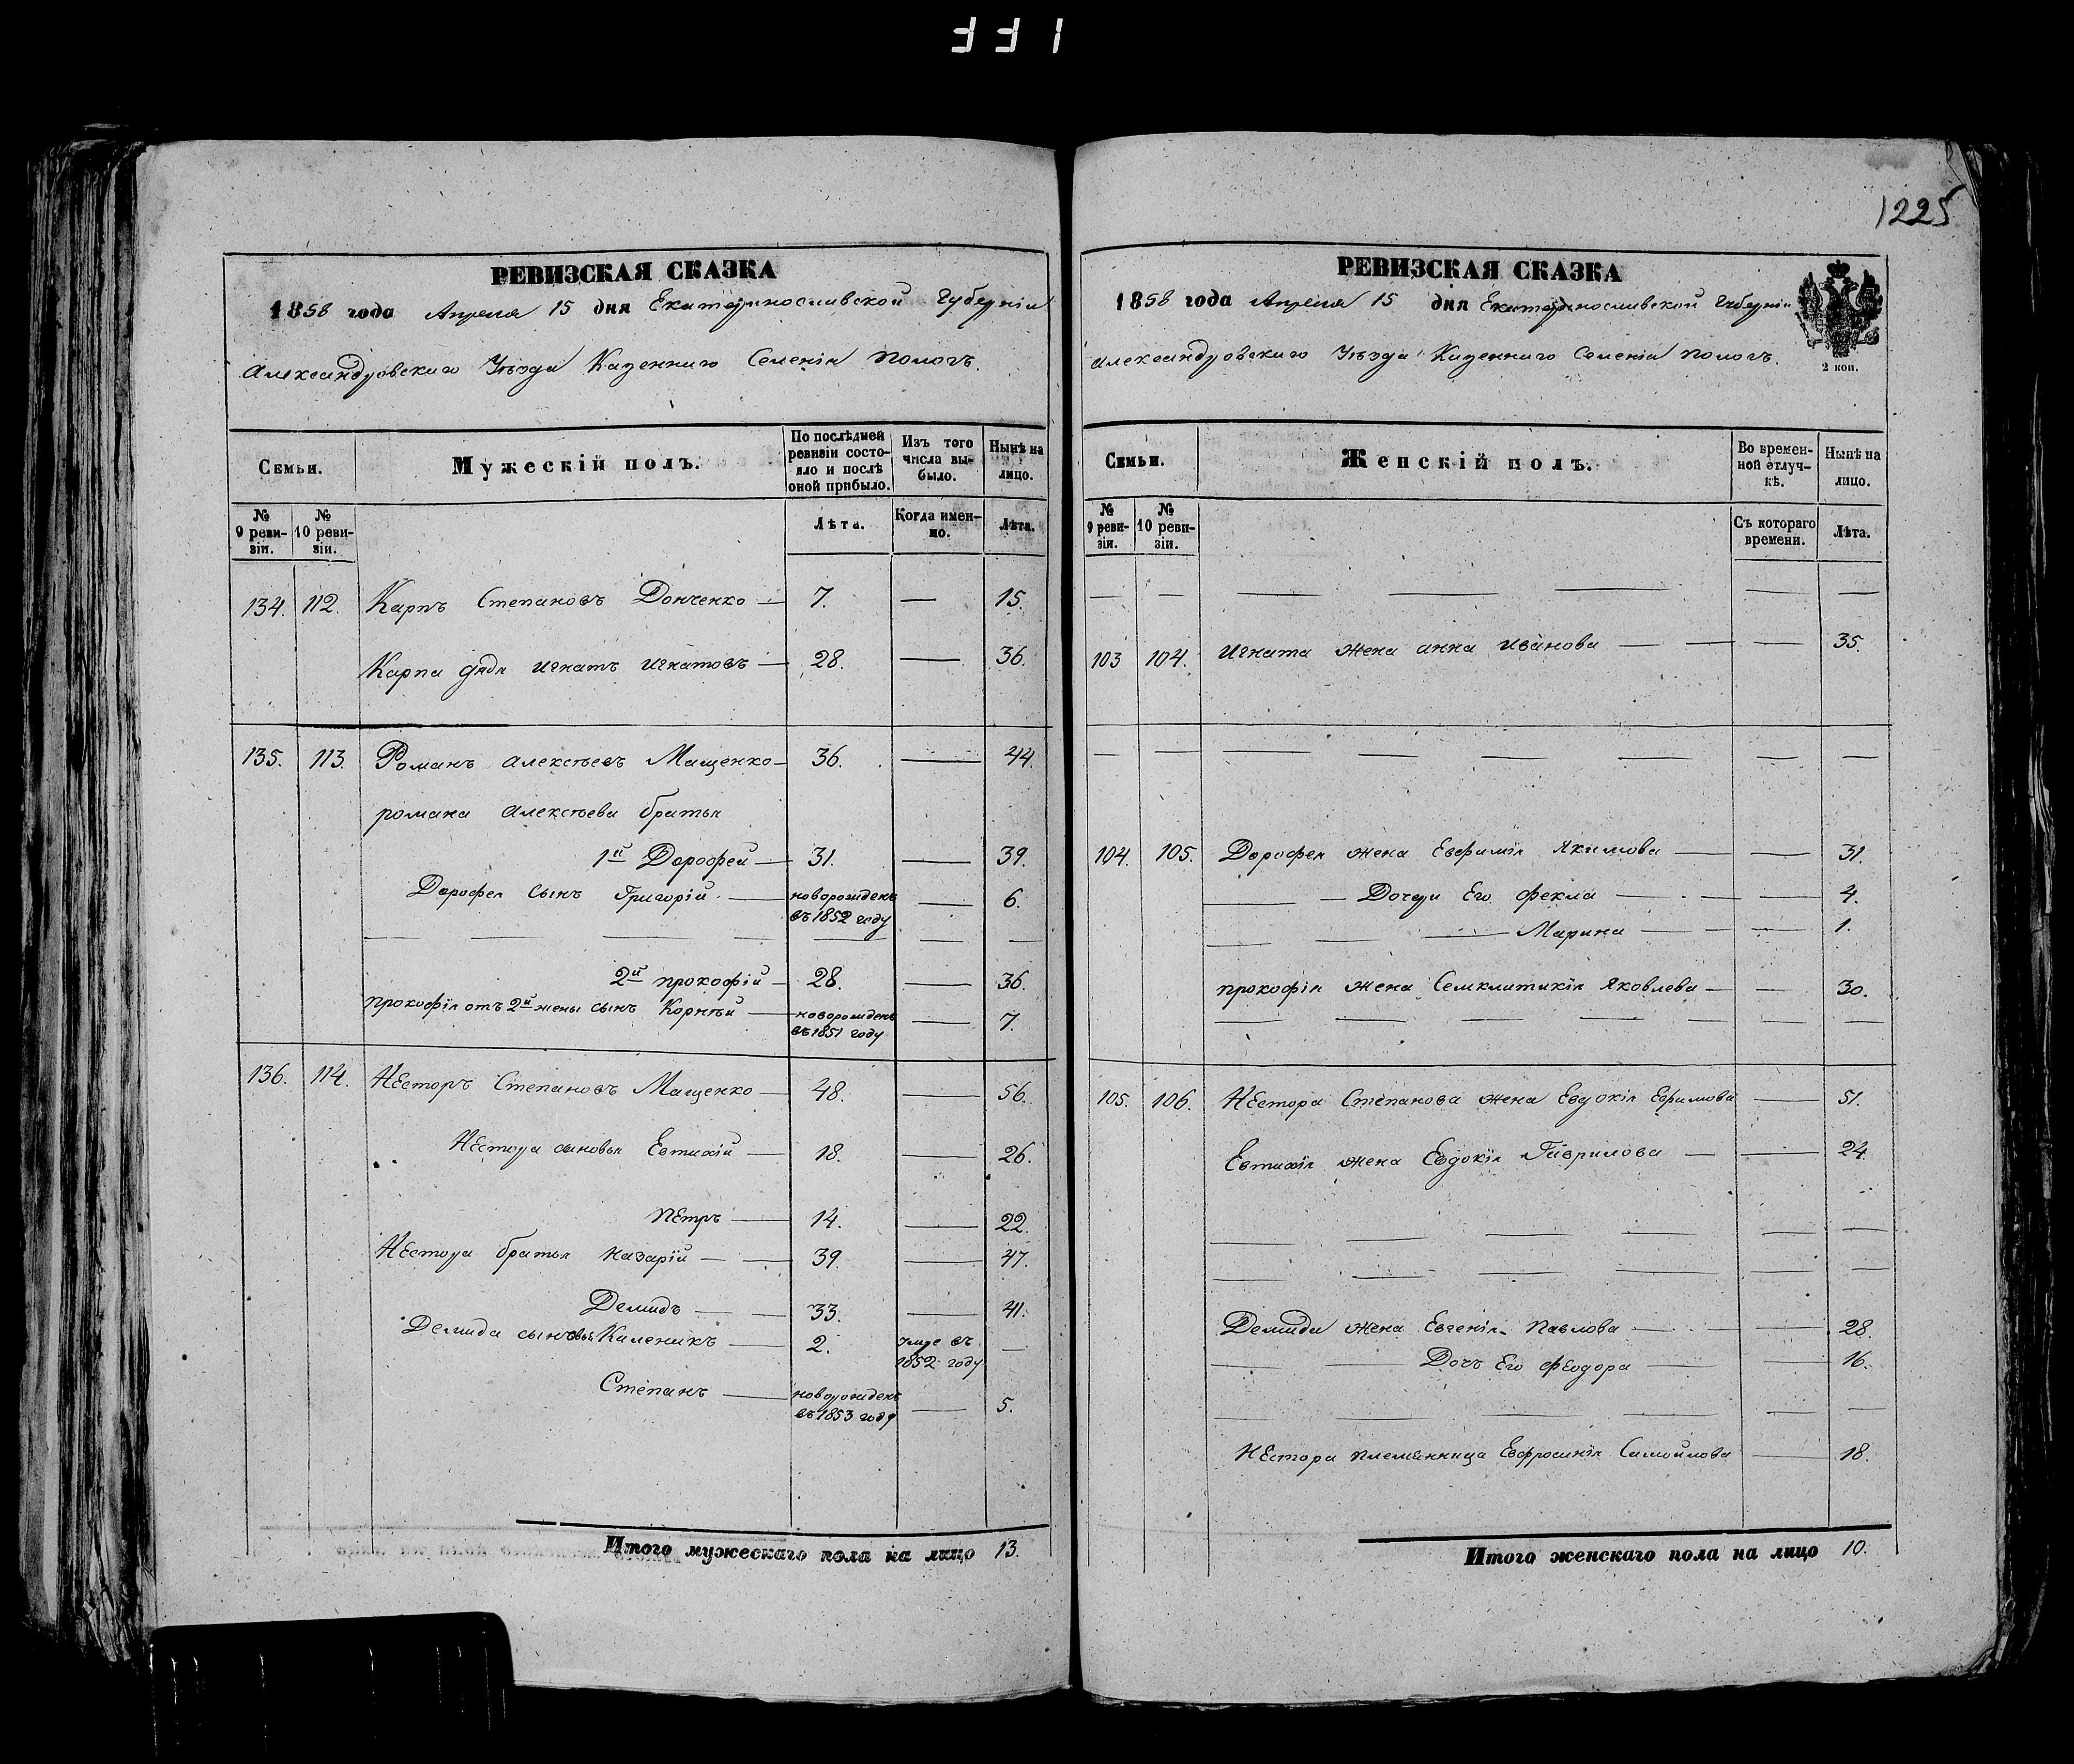 1225
РЕВИЗСКАЯ СКАЗКА
1858 года Апреля 15 дня Екатеринославской Губерніи
Александровскаго Уѣзда Казеннаго Селенія Пологъ.
Семьи. Мужескій полъ. По послѣдней ревизіи состояло и послѣ оной прибыло. Изъ того числа выбыло. Нынѣ на лицо.
№ 9 ревизіи. № 10 ревизіи. Лѣта. Когда именно. Лѣта.
134. 112. Карпъ Степановъ Донченко — 7. — 15.
Карпа дядя Игнатъ Игнатовъ — 28. — 36.
135. 113. Романъ Алексѣевъ Мащенко — 36. — 44.
Романа Алексѣева братья
1й Дорофей — 31. — 39.
Дорофея сынъ Григорій — новорожденъ въ 1852 году — 6.
2й Прокофій — 28. — 36.
Прокофія отъ 2й жены сынъ Корнѣй — новорожденъ въ 1851 году — 7.
136. 114. Несторъ Степановъ Мащенко — 48. — 56.
Нестора сыновья Евтихій — 18. — 26.
Петръ — 14. — 22.
Нестора братья Назарій — 39. — 47.
Демидъ — 33. — 41.
Демида сыновья Каленикъ — 2. умре въ 1852 году —
Степанъ — новорожденъ въ 1853 году — 5.
Итого мужескаго пола на лицо 13.
РЕВИЗСКАЯ СКАЗКА
1858 года Апреля 15 дня Екатеринославской Губерніи
Александровскаго Уѣзда Казеннаго Селенія Пологъ.
2 коп.
Семьи. Женскій полъ. Во временной отлучкѣ. Нынѣ на лицо.
№ 9 ревизіи. № 10 ревизіи. Съ котораго времени. Лѣта.
103 104. Игната жена Анна Иванова — — 35.
104. 105. Дорофея жена Евфимія Якимова — — 31.
Дочери Его Фекла — — 4.
Марина — — 1.
Прокофія жена Семклитикія Яковлева — — 30.
105. 106. Нестора Степанова жена Евдокія Ефимова — 51.
Евтихія жена Евдокія Гаврилова — — 24.
Демида жена Евгенія Павлова — — 28.
Дочь Его Феодора — — 16.
Нестора племянница Евфросинія Самойлова — 18.
Итого женскаго пола на лицо 10.